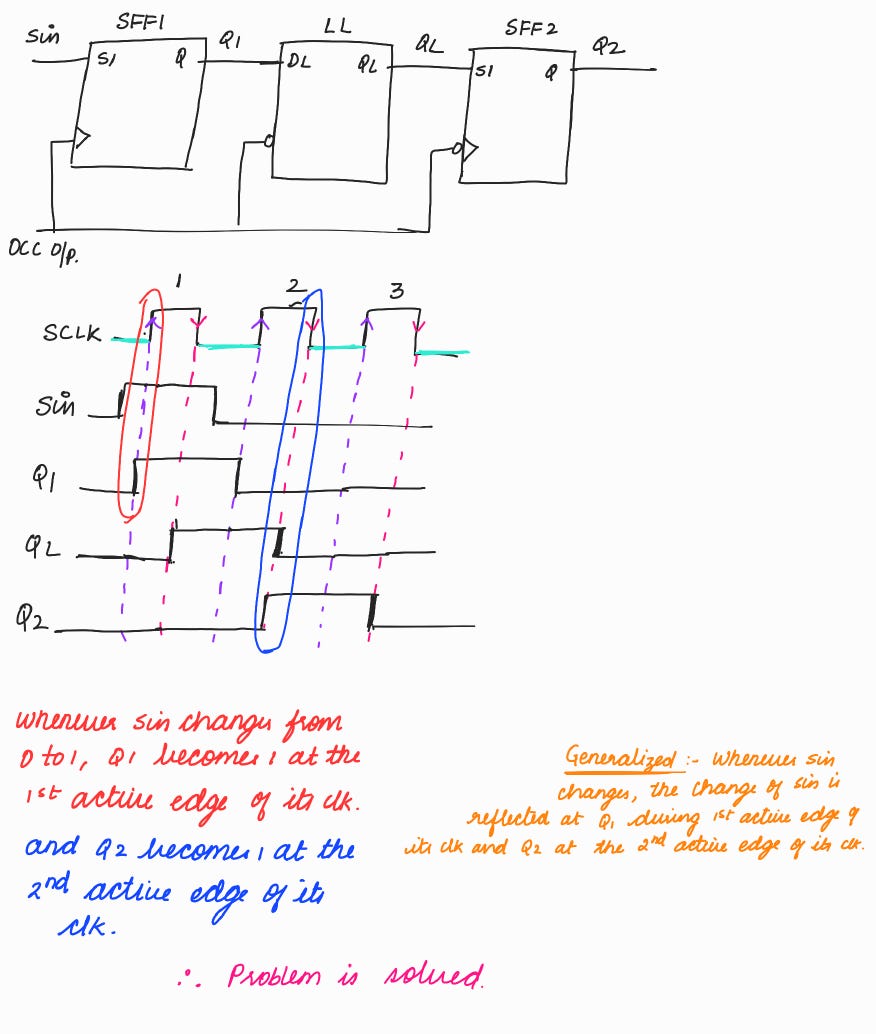 SFF1 LL SFF2
Sin Q1 QL Q2
SI Q DL QL SI Q
OCC O/P.
1 2 3
SCLK
Sin
Q1
QL
Q2
Whenever sin changes from
0 to 1, Q1 becomes 1 at the
1st active edge of its clk.
and Q2 becomes 1 at the
2nd active edge of its
clk.
Generalized :- Whenever sin
changes, the change of sin is
reflected at Q1 during 1st active edge of
its clk and Q2 at the 2nd active edge of its clk.
∴ Problem is solved.